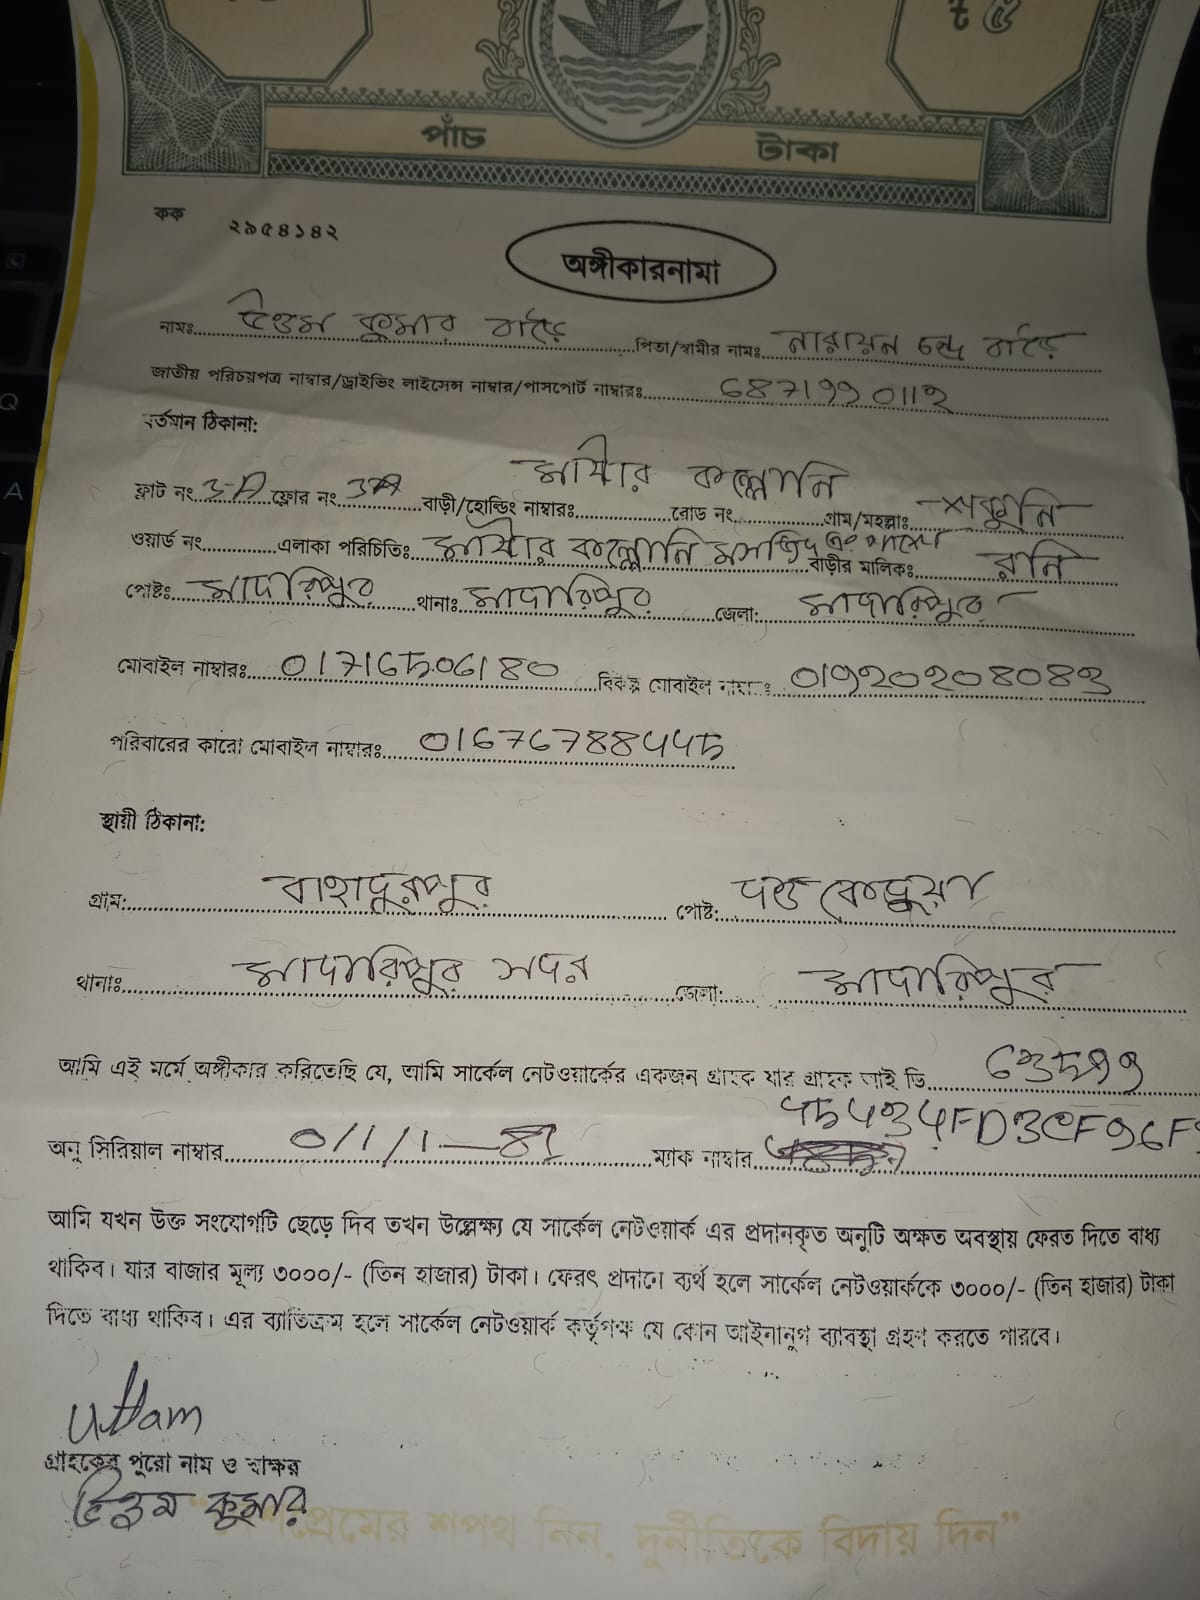 ৳ ৫
পাঁচ টাকা
কক ২৯৫৪১৪২
অঙ্গীকারনামা
নামঃ উত্তম কুমার বাড়ৈ পিতা/স্বামীর নামঃ নারায়ন চন্দ্র বাড়ৈ
জাতীয় পরিচয়পত্র নাম্বার/ড্রাইভিং লাইসেন্স নাম্বার/পাসপোর্ট নাম্বারঃ
বর্তমান ঠিকানা:
ফ্লাট নং 3-A ফ্লোর নং 3A বাড়ী/হোল্ডিং নাম্বারঃ মাষ্টার কল্লোনি রোড নং গ্রাম/মহল্লাঃ শকুনি
ওয়ার্ড নং এলাকা পরিচিতিঃ মাষ্টার কল্লোনি মসজিদ এর পাশে বাড়ীর মালিকঃ রনি
পোষ্টঃ মাদারিপুর থানাঃ মাদারিপুর জেলা: মাদারিপুর
মোবাইল নাম্বারঃ বিকল্প মোবাইল নাম্বারঃ
পরিবারের কারো মোবাইল নাম্বারঃ
স্থায়ী ঠিকানা:
গ্রাম: বাহাদুরপুর পোষ্ট: কেন্দুয়া
থানাঃ মাদারিপুর সদর জেলা: মাদারিপুর
আমি এই মর্মে অঙ্গীকার করিতেছি যে, আমি সার্কেল নেটওয়ার্কের একজন গ্রাহক যার গ্রাহক আই ডি
অনু সিরিয়াল নাম্বার ম্যাক নাম্বার
আমি যখন উক্ত সংযোগটি ছেড়ে দিব তখন উল্লেক্ষ্য যে সার্কেল নেটওয়ার্ক এর প্রদানকৃত অনুটি অক্ষত অবস্থায় ফেরত দিতে বাধ্য
থাকিব। যার বাজার মূল্য ৩০০০/- (তিন হাজার) টাকা। ফেরৎ প্রদানে ব্যর্থ হলে সার্কেল নেটওয়ার্ককে ৩০০০/- (তিন হাজার) টাকা
দিতে বাধ্য থাকিব। এর ব্যাতিক্রম হলে সার্কেল নেটওয়ার্ক কর্তৃপক্ষ যে কোন আইনানুগ ব্যাবস্থা গ্রহণ করতে পারবে।
Uttam
গ্রাহকের পুরো নাম ও স্বাক্ষর
উত্তম কুমার
প্রেমের শপথ নিন, দুর্নীতিকে বিদায় দিন”